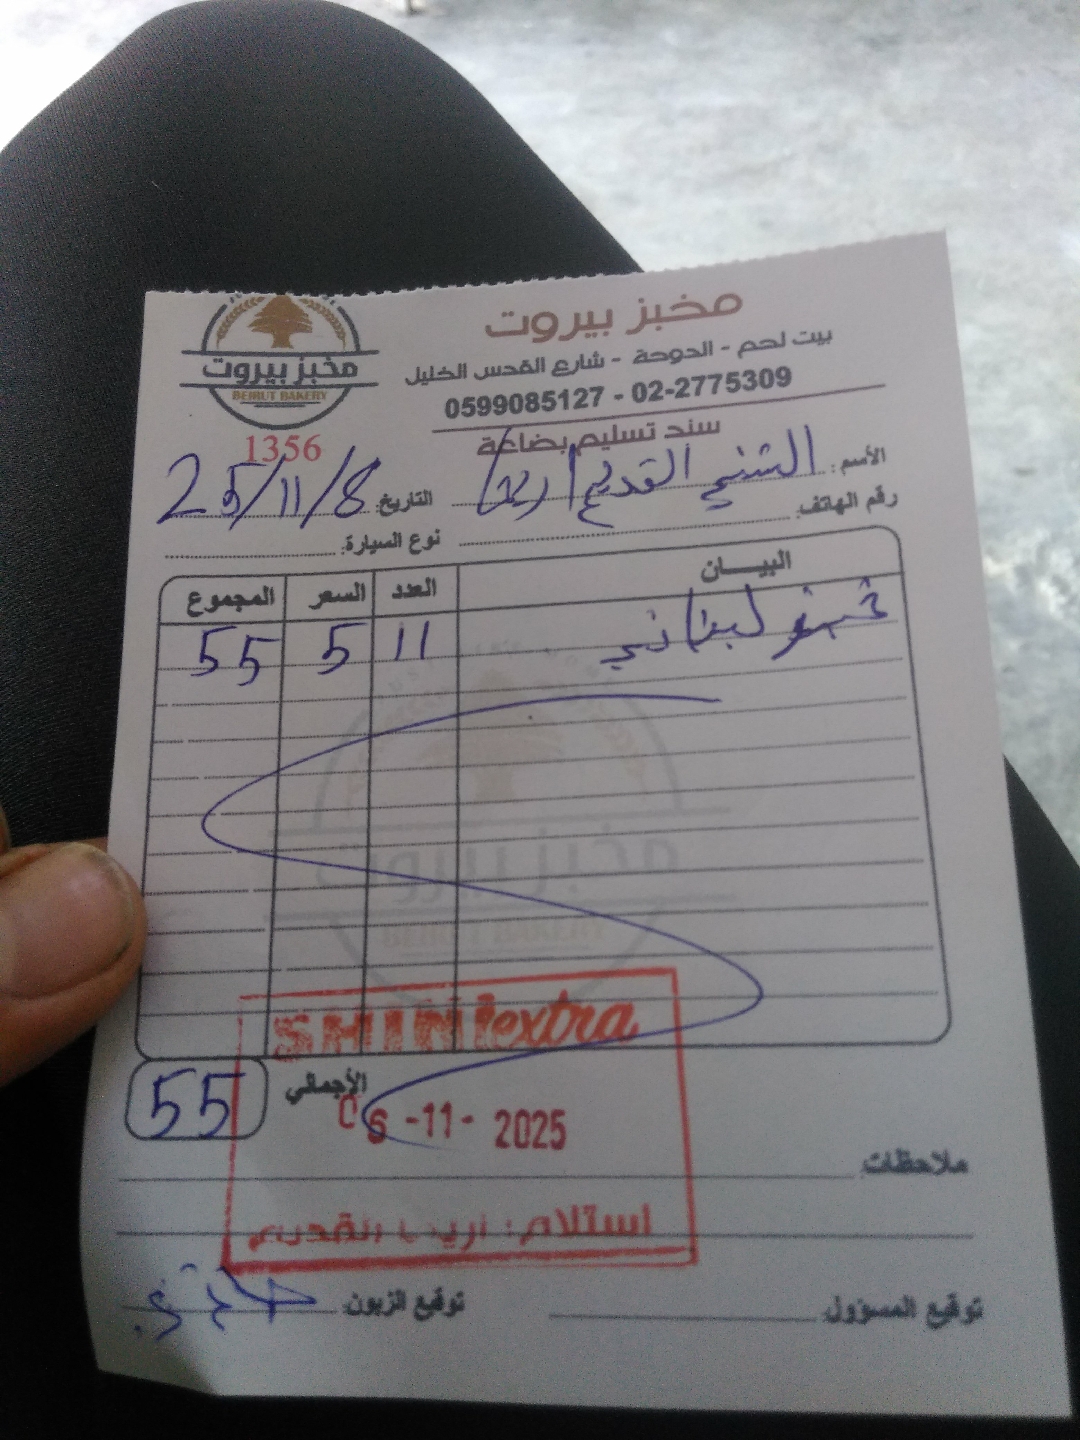 مخبز بيروت
BEIRUT BAKERY
1356
مخبز بيروت
بيت لحم - الدوحة - شارع القدس الخليل
0599085127 - 02-2775309
سند تسليم بضاعة
الأسم: الشني القديم اريحا
التاريخ: 25/11/8
رقم الهاتف:
نوع السيارة:
البيـــان العدد السعر المجموع
خبز لبناني 11 5 55
مخبز بيروت
BEIRUT BAKERY
SHINI extra
الأجمالي 55
06 -11- 2025
ملاحظات:
استلام: اريحا القديم
توقيع المسؤول: توقيع الزبون: